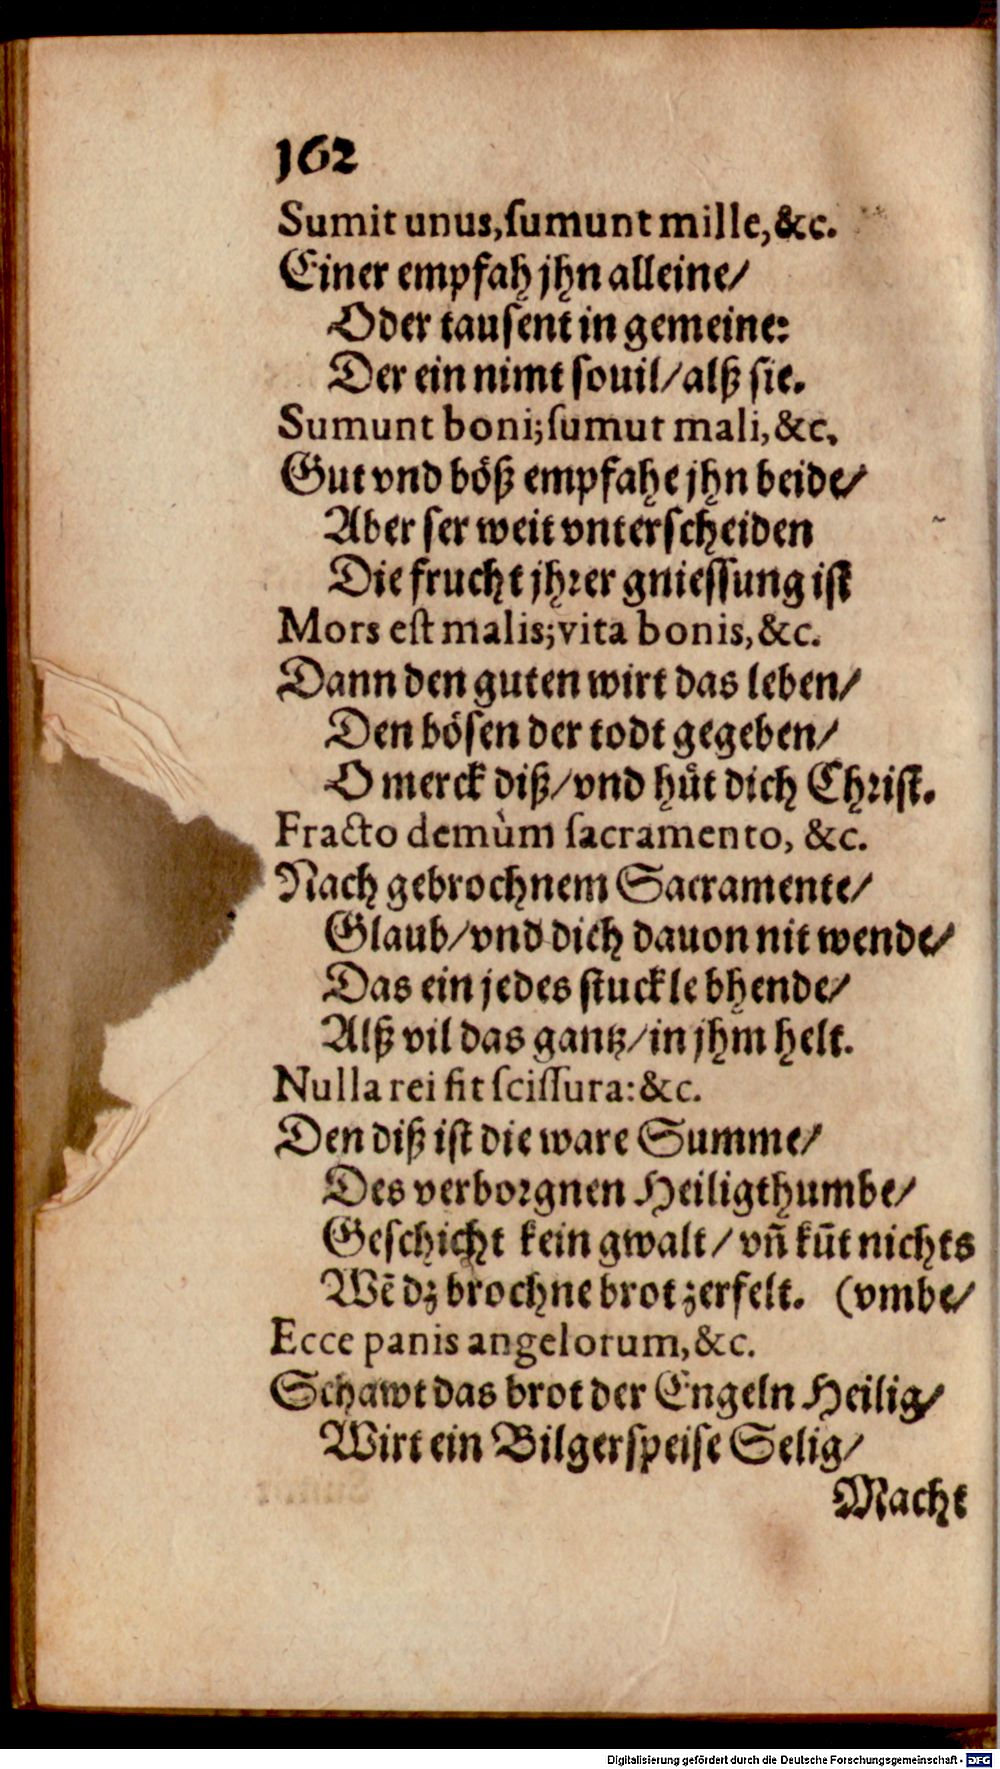 162
Sumit unus, ſumunt mille, &c.
Einer empfah jhn alleine/
Oder tauſent in gemeine:
Der ein nimt ſouil/ alß ſie.
Sumunt boni; ſumut mali, &c.
Gut vnd böß empfahe jhn beide/
Aber ſer weit vnterſcheiden
Die frucht jhrer gnieſſung iſt
Mors eſt malis; vita bonis, &c.
Dann den guten wirt das leben/
Den böſen der todt gegeben/
O merck diß/ vnd hüt dich Chriſt.
Fracto demùm ſacramento, &c.
Nach gebrochnem Sacramente/
Glaub/ vnd dich dauon nit wende/
Das ein jedes ſtuckle bhende/
Alß vil das gantz/ in jhm helt.
Nulla rei fit ſciſſura: &c.
Den diß iſt die ware Summe/
Des verborgnen Heiligthumbe/
Geſchicht kein gwalt/ vñ kūt nichts
Wē dz brochne brot zerfelt. (vmbe/
Ecce panis angelorum, &c.
Schawt das brot der Engeln Heilig/
Wirt ein Bilgerſpeiſe Selig/
Macht
Digitalisierung gefördert durch die Deutsche Forschungsgemeinschaft - DFG